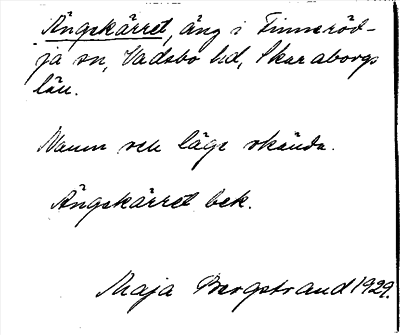 Ängskärret, äng i Finneröd-
ja sn, Vadsbo hd, Skaraborgs
län.
Namn och läge okända.
Ängskärret bek.
Maja Bergstrand 1929.